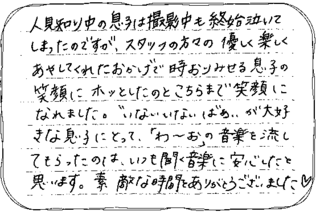 人見知り中の息子は撮影中も終始泣いて
しまったのですが、スタッフの方々の優しく楽しく
あやしてくれたおかげで時おりみせる息子の
笑顔にホッとしたのとこちらまで笑顔に
なれました。"いないいないばぁ、、が大好
きな息子にとって、「わ〜お」の音楽を流し
てもらったのは、いつも聞く音楽に安心したと
思います。素敵な時間をありがとうございました♡